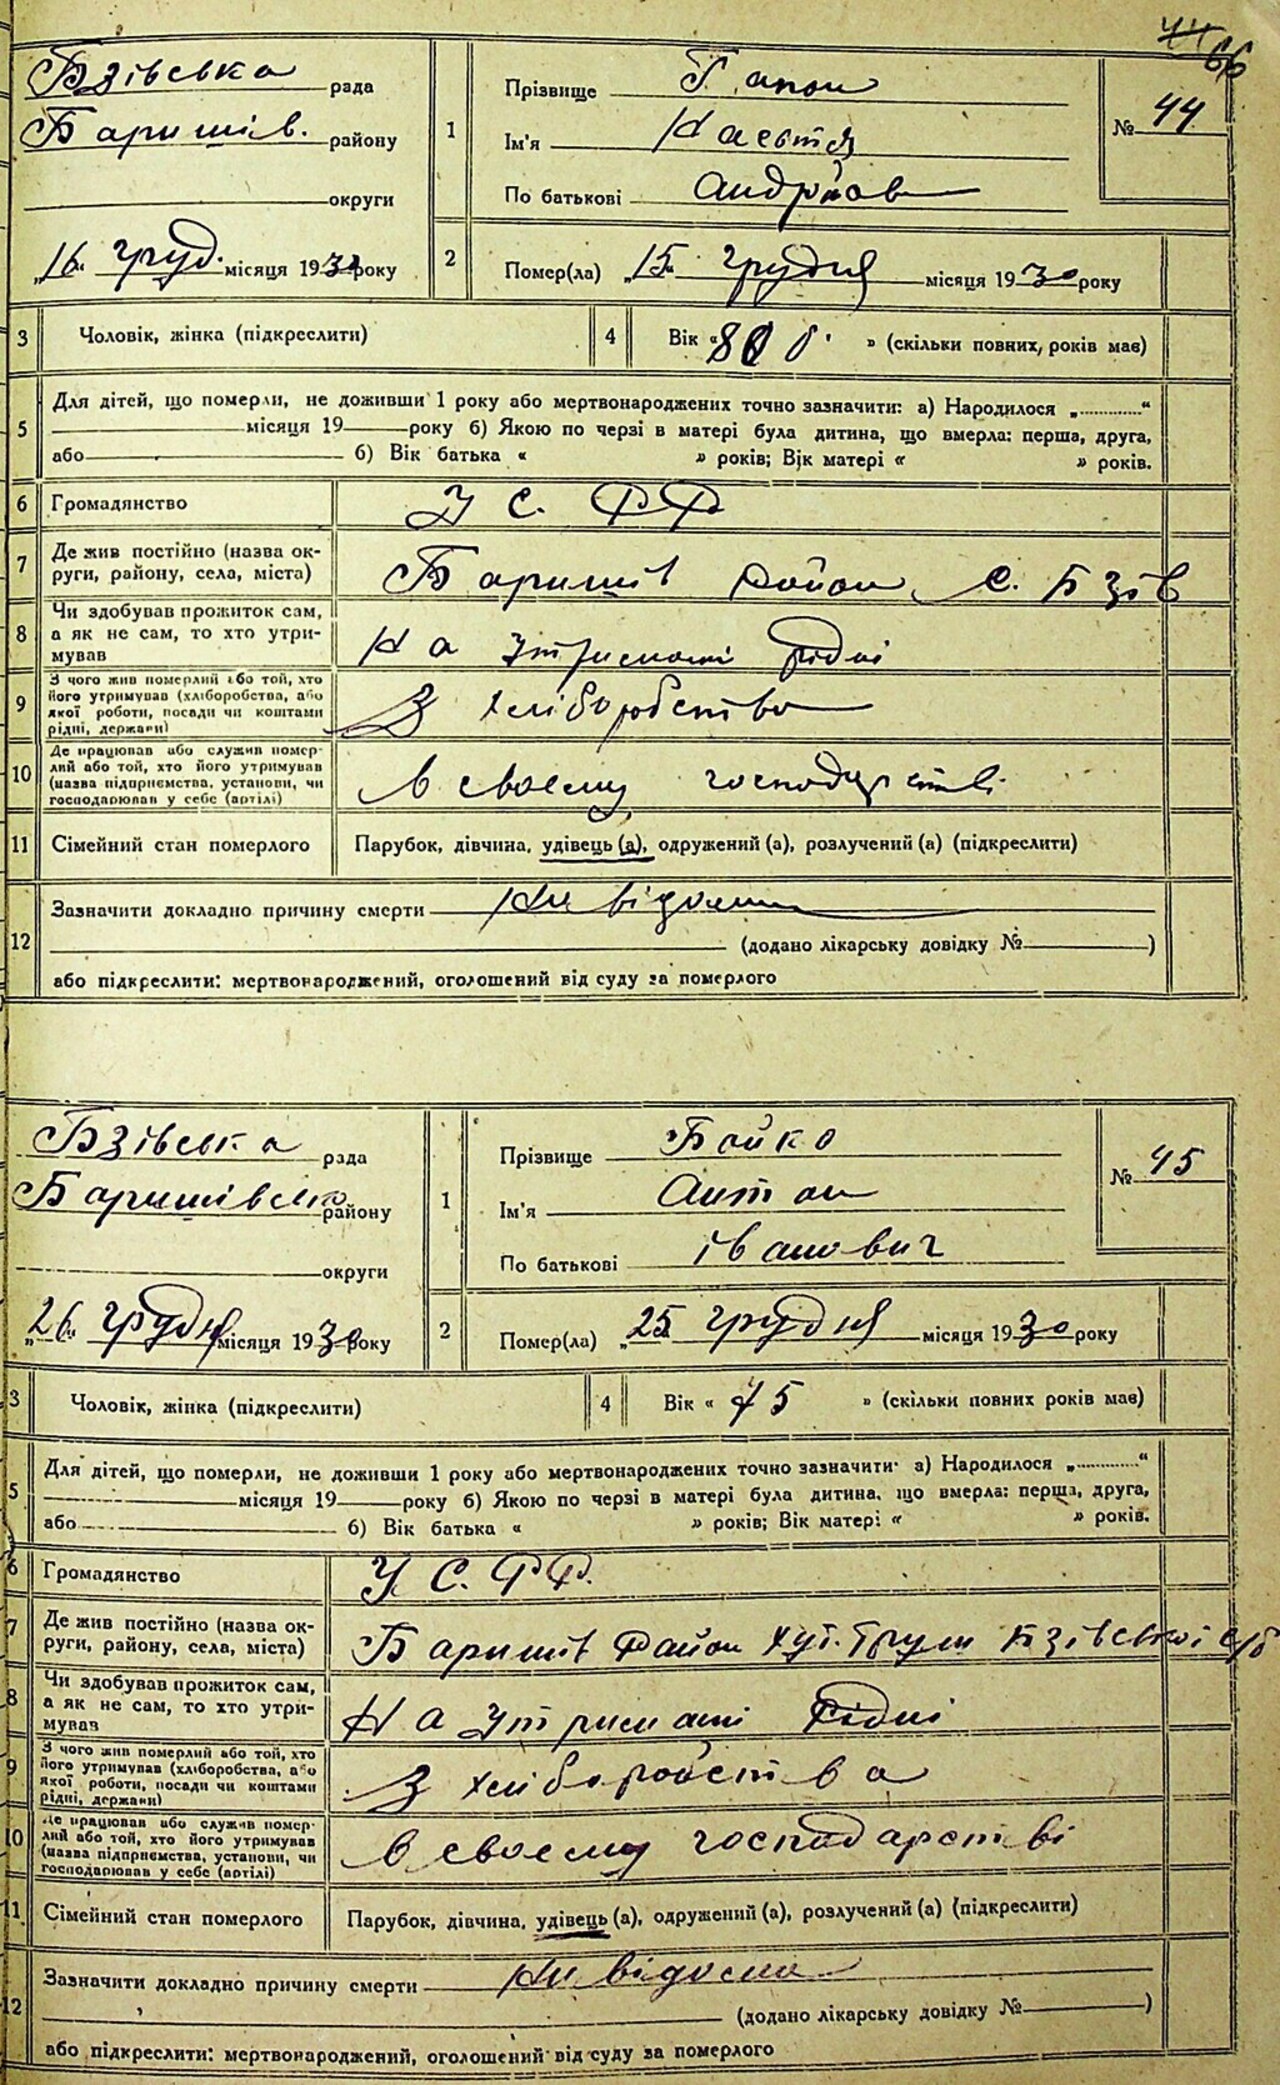 44 66
Бзівська рада
Баришів. району
округи
„16“ груд. місяця 1930 року
1
Прізвище Гапон
Ім'я Настя
По батькові Андріїов
№ 44
2
Помер(ла) „15“ грудня місяця 1930 року
3 Чоловік, жінка (підкреслити)
4 Вік « » (скільки повних, років має)
5 Для дітей, що померли, не доживши 1 року або мертвонароджених точно зазначити: а) Народилося „............“
місяця 19 року б) Якою по черзі в матері була дитина, що вмерла: перша, друга,
або б) Вік батька « » років; Вік матері « » років.
6 Громадянство У С. Р Р
7 Де жив постійно (назва ок-
руги, району, села, міста) Баришів район, с. Бзів
8 Чи здобував прожиток сам,
а як не сам, то хто утри-
мував На утримані рідні
9 З чого жив померлий або той, хто
його утримував (хліборобства, або
якої роботи, посади чи коштами
рідні, держави) З хліборобства
10 Де працював або служив помер-
лий або той, хто його утримував
(назва підприємства, установи, чи
господарював у себе (артілі) в своєму господарстві
11 Сімейний стан померлого Парубок, дівчина, удівець (а), одружений (а), розлучений (а) (підкреслити)
12 Зазначити докладно причину смерти Не відома
(додано лікарську довідку № )
або підкреслити: мертвонароджений, оголошений від суду за померлого
Бзівська рада
Баришівсько району
округи
„26“ грудня місяця 1930 року
1
Прізвище Бойко
Ім'я Антон
По батькові Іванович
№ 45
2
Помер(ла) „25“ грудня місяця 1930 року
3 Чоловік, жінка (підкреслити)
4 Вік « 75 » (скільки повних років має)
5 Для дітей, що померли, не доживши 1 року або мертвонароджених точно зазначити: а) Народилося „............“
місяця 19 року б) Якою по черзі в матері була дитина, що вмерла: перша, друга,
або б) Вік батька « » років; Вік матері « » років.
6 Громадянство У С. Р Р.
7 Де жив постійно (назва ок-
руги, району, села, міста) Баришів район хут. Бзівської с/р
8 Чи здобував прожиток сам,
а як не сам, то хто утри-
мував На утримані рідні
9 З чого жив померлий або той, хто
його утримував (хліборобства, або
якої роботи, посади чи коштами
рідні, держави) З хліборобства
10 Де працював або служив помер-
лий або той, хто його утримував
(назва підприємства, установи, чи
господарював у себе (артілі) в своєму господарстві
11 Сімейний стан померлого Парубок, дівчина, удівець (а), одружений (а), розлучений (а) (підкреслити)
12 Зазначити докладно причину смерти Не відома
(додано лікарську довідку № )
або підкреслити: мертвонароджений, оголошений від суду за померлого